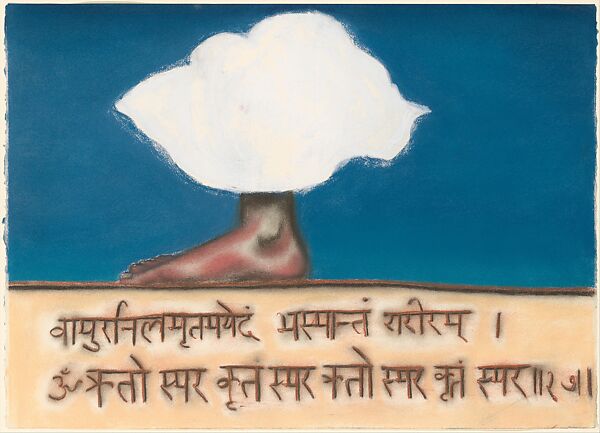 वायुरनिलमृतमयेदं भस्मान्तं शरीरम ।
ॐ ऋतो स्मर कृतं स्मर ऋतो स्मर कृतं स्मर॥१७॥